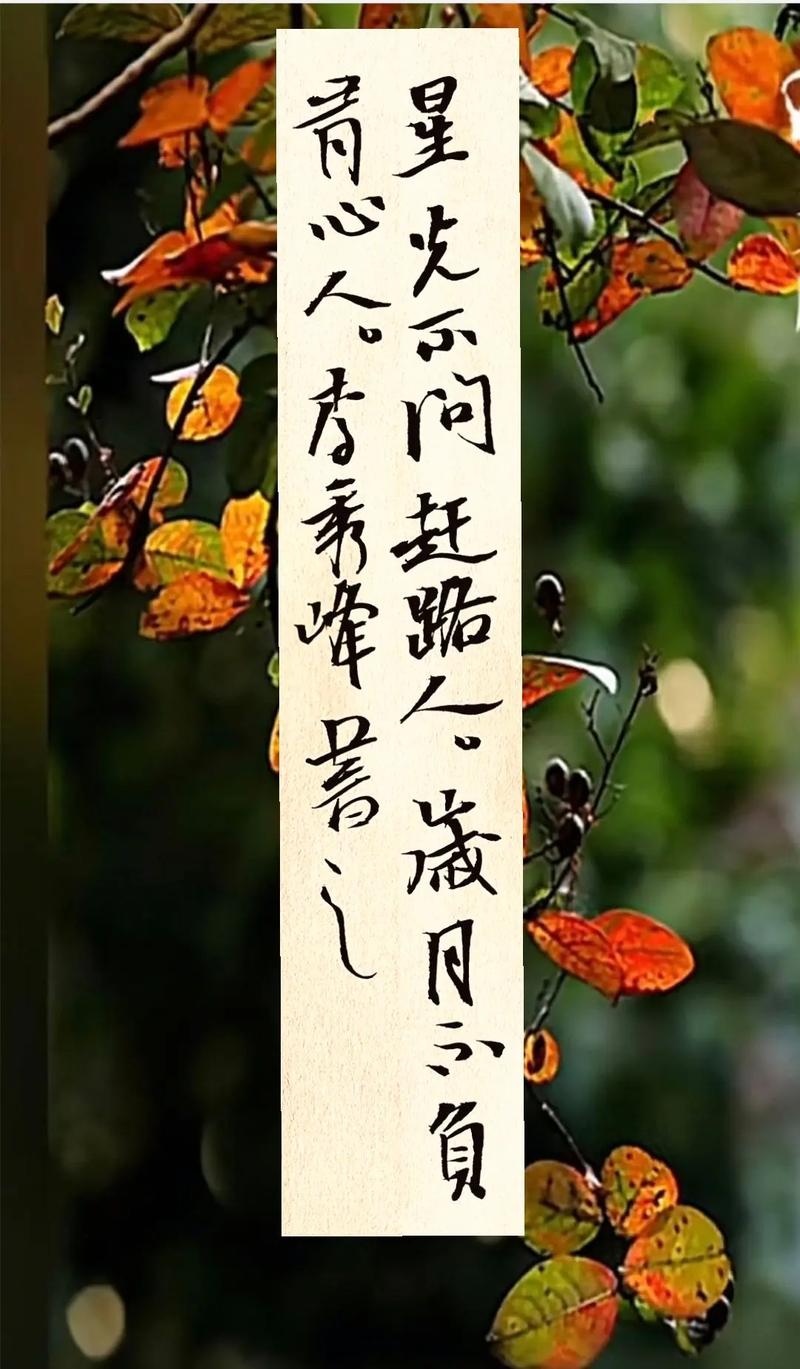 星光不问赶路人。歲月不負
有心人。李秀峰書之